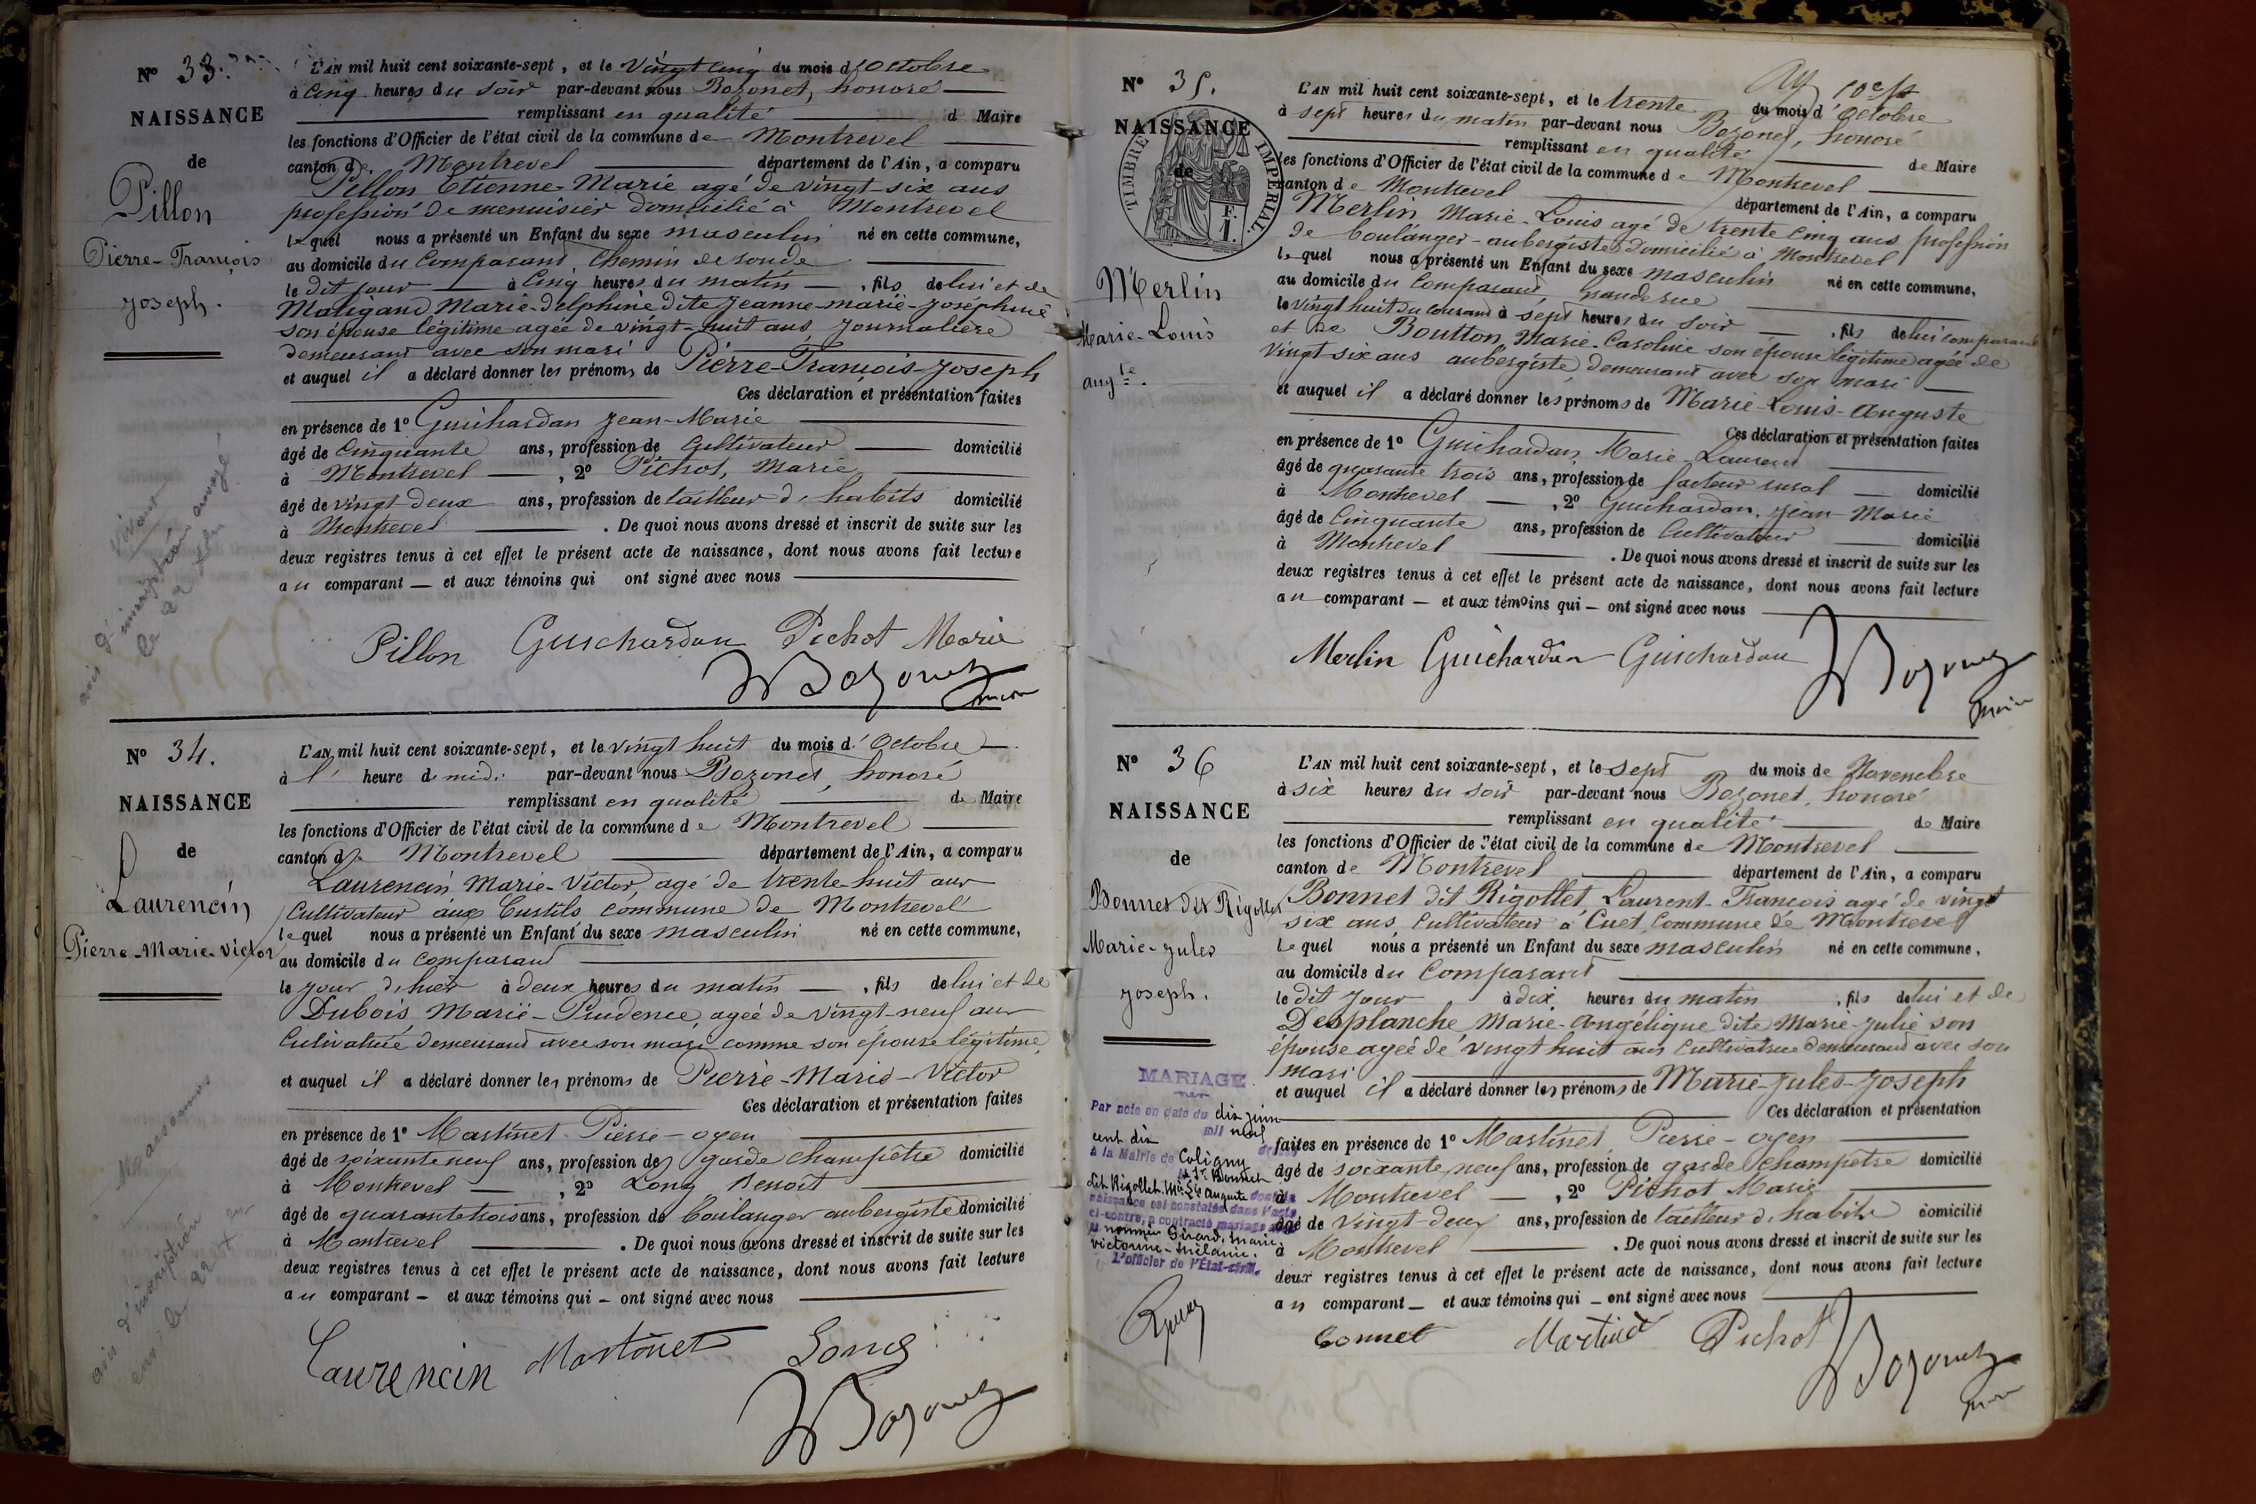 N° 33.
NAISSANCE
de
Pillon
Pierre-François
Joseph.
L'AN mil huit cent soixante-sept, et le Vingt cinq du mois d'Octobre
à Cinq heures du soir par-devant nous Bozonet, honoré
remplissant en qualité de Maire
les fonctions d'Officier de l'état civil de la commune de Montrevel
canton de Montrevel département de l'Ain, a comparu
Pillon Etienne-Marie agé de vingt-six ans
profession de menuisier domicilié à Montrevel
lequel nous a présenté un Enfant du sexe masculin né en cette commune,
au domicile du Comparant, Chemin de ronde
le dit jour à Cinq heures du matin, fils de lui et de
Matigand Marie-Delphine dite Jeanne-marie-Joséphine
son épouse légitime agée de vingt-huit ans Journalière
demeurant avec son mari
et auquel il a déclaré donner les prénoms de Pierre-François-Joseph
Ces déclaration et présentation faites
en présence de 1° Guichardan Jean-Marie
âgé de Cinquante ans, profession de Cultivateur domicilié
à Montrevel, 2° Pichot, Marie
âgé de vingt-deux ans, profession de tailleur d'habits domicilié
à Montrevel. De quoi nous avons dressé et inscrit de suite sur les
deux registres tenus à cet effet le présent acte de naissance, dont nous avons fait lecture
au comparant et aux témoins qui ont signé avec nous
Pillon Guichardan Pichot Marie
Bozonet
maire
avis d'inscription
le 22
N° 34.
NAISSANCE
de
Laurencin
Pierre-Marie-Victor
L'AN mil huit cent soixante-sept, et le vingt huit du mois d'Octobre
à l'heure de midi par-devant nous Bozonet, honoré
remplissant en qualité de Maire
les fonctions d'Officier de l'état civil de la commune de Montrevel
canton de Montrevel département de l'Ain, a comparu
Laurencin Marie-Victor, agé de trente-huit ans
Cultivateur aux Curtils commune de Montrevel
lequel nous a présenté un Enfant du sexe masculin né en cette commune,
au domicile du Comparant
le jour d'hier à deux heures du matin, fils de lui et de
Dubois Marie-Prudence, agée de vingt-neuf ans
Cultivatrice demeurant avec son mari comme son épouse légitime
et auquel il a déclaré donner les prénoms de Pierre-Marie-Victor
Ces déclaration et présentation faites
en présence de 1° Martinet Pierre-oyen
âgé de soixante neuf ans, profession de garde champêtre domicilié
à Montrevel, 2° Long Benoît
âgé de quarante trois ans, profession de boulanger aubergiste domicilié
à Montrevel. De quoi nous avons dressé et inscrit de suite sur les
deux registres tenus à cet effet le présent acte de naissance, dont nous avons fait lecture
au comparant et aux témoins qui ont signé avec nous
Laurencin Martinet Long
Bozonet
avis d'inscription
N° 35.
NAISSANCE
de
TIMBRE IMPÉRIAL
Merlin
Marie-Louis
aug.te
L'AN mil huit cent soixante-sept, et le trente du mois d'Octobre
à sept heures du matin par-devant nous Bozonet, honoré
remplissant en qualité de Maire
les fonctions d'Officier de l'état civil de la commune de Montrevel
canton de Montrevel département de l'Ain, a comparu
Merlin Marie-Louis agé de trente cinq ans profession
de boulanger-aubergiste domicilié à Montrevel
lequel nous a présenté un Enfant du sexe masculin né en cette commune,
au domicile du Comparant, grande rue
le vingt huit du courant à sept heures du soir, fils de lui comparant
et de Boutton, Marie-Caroline son épouse légitime agée de
vingt-six ans aubergiste, demeurant avec son mari
et auquel il a déclaré donner les prénoms de Marie-Louis-Auguste
Ces déclaration et présentation faites
en présence de 1° Guichardan, Marie-Laurent
âgé de quarante trois ans, profession de facteur rural domicilié
à Montrevel, 2° Guichardan, Jean-Marie
âgé de Cinquante ans, profession de Cultivateur domicilié
à Montrevel. De quoi nous avons dressé et inscrit de suite sur les
deux registres tenus à cet effet le présent acte de naissance, dont nous avons fait lecture
au comparant et aux témoins qui ont signé avec nous
Merlin Guichardan Guichardan
Bozonet
maire
N° 36
NAISSANCE
de
Bonnet dit Rigollet
Marie-Jules
Joseph.
L'AN mil huit cent soixante-sept, et le sept du mois de Novembre
à six heures du soir par-devant nous Bozonet, honoré
remplissant en qualité de Maire
les fonctions d'Officier de l'état civil de la commune de Montrevel
canton de Montrevel département de l'Ain, a comparu
Bonnet dit Rigollet, Laurent-François agé de vingt
six ans, Cultivateur à Cuet, Commune de Montrevel
Lequel nous a présenté un Enfant du sexe masculin né en cette commune,
au domicile du Comparant
le dit jour à dix heures du matin, fils de lui et de
Desplanche Marie-Angélique dite Marie-Julie son
épouse agée de vingt huit ans Cultivatrice demeurant avec son
mari
et auquel il a déclaré donner les prénoms de Marie-Jules-Joseph
Ces déclaration et présentation
faites en présence de 1° Martinet, Pierre-oyen
âgé de soixante neuf ans, profession de garde champêtre domicilié
à Montrevel, 2° Pichot Marie
âgé de Vingt-deux ans, profession de tailleur d'habits domicilié
à Montrevel. De quoi nous avons dressé et inscrit de suite sur les
deux registres tenus à cet effet le présent acte de naissance, dont nous avons fait lecture
au comparant et aux témoins qui ont signé avec nous
Bonnet Martinet Pichot
Bozonet
maire
MARIAGE
Par acte en date du dix juin
mil neuf
cent dix
à la Mairie de Coligny
Bonnet
dit Rigollet dont la
naissance est constatée dans l'acte
ci-contre, a contracté mariage avec
la nommée Girard, Marie
Victorine-Mélanie.
L'officier de l'État-civil,